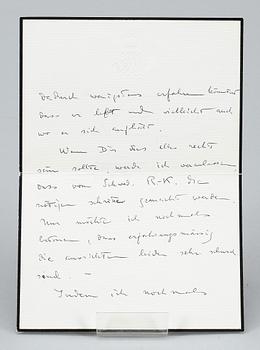 dadurch wenigstens erfahren könntest
dass er lebt und vielleicht auch
wo er sich aufhält.
Wenn Dir dies alles recht
sein sollte, werde ich veranlassen
dass vom Schwed. R-K. die
nötigen Schritte gemacht werden.
Nur möchte ich nochmals
betonen, dass erfahrungsmässig
die Aussichten leider sehr schwach
sind. —
Indem ich nochmals